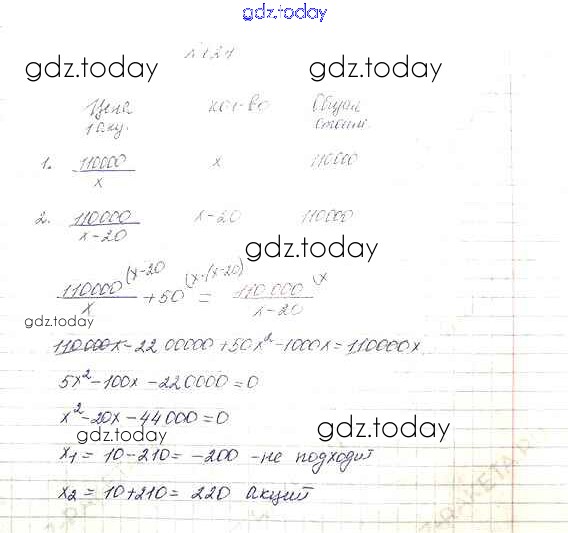 gdz.today
№ 1.21
gdz.today gdz.today
Цена кол-во Общая
1 акц. стоим.
1. 110000/x x 110000
2. 110000/x-20 x-20 110000
gdz.today
110000/x (x-20 + 50 (x·(x-20) = 110 000/x-20 (x
gdz.today
110000x - 2200000 + 50x² - 1000x = 110000x
5x² - 100x - 220000 = 0
x² - 20x - 44000 = 0
gdz.today gdz.today
x₁ = 10 - 210 = -200 - не подходит
x₂ = 10 + 210 = 220 акций